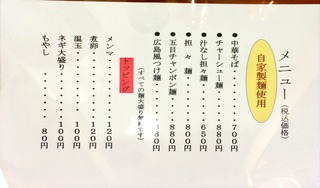 メニュー（税込価格）
自家製麺使用
●中華そば・・・・・・７００円
●チャーシュー麺・・・・８８０円
●汁なし担々麺・・・・６５０円
●担々麺・・・・・・８８０円
●五目チャンポン麺・・８８０円
●広島風つけ麺・・・・８８０円
（すべての麺大盛り無料です）
トッピング
メンマ・・・・１２０円
煮卵・・・・・１２０円
温玉・・・・・１００円
ネギ大盛り・・１００円
もやし・・・・・８０円